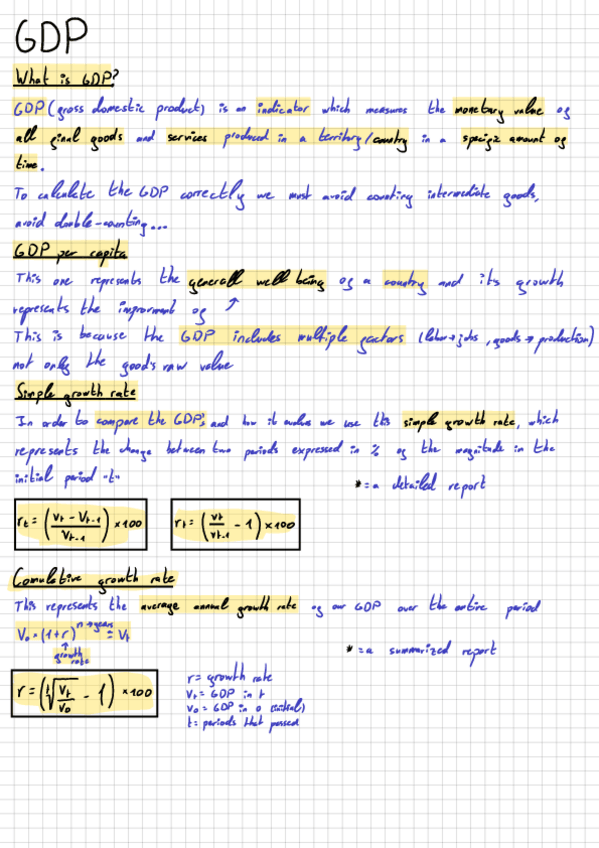 GDP
What is GDP?
GDP (gross domestic product) is an indicator which measures the monetary value of
all final goods and services produced in a territory/country in a specific amount of
time.
To calculate the GDP correctly we must avoid counting intermediate goods,
avoid double-counting...
GDP per capita
This one represents the generall well being of a country and its growth
represents the improvment of ↗
This is because the GDP includes multiple factors (labor→jobs, goods→production)
not only the good's raw value
Simple growth rate
In order to compare the GDP's and how it evolves we use this simple growth rate, which
represents the change between two periods expressed in % of the magnitude in the
initial period "t"
*=a detailed report
r_t = ((V_t - V_t-1)/V_t-1) × 100
r_t = (V_t/V_t-1 - 1) × 100
Comulative growth rate
This represents the average annual growth rate of our GDP over the entire period
V_0 · (1+r)^n→years = V_t
↑
growth
rate
*=a summarized report
r = (ᵗ√(V_t/V_0) - 1) × 100
r = growth rate
V_t = GDP in t
V_0 = GDP in 0 (initial)
t = periods that passed